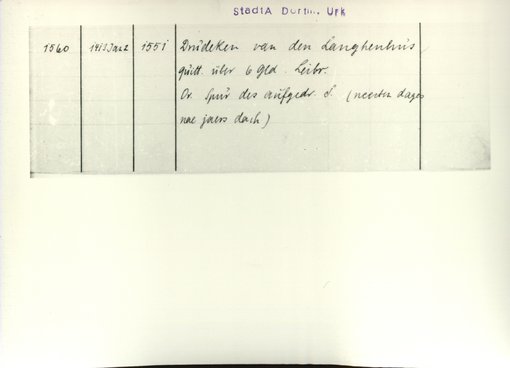 StadtA Dortm. Urk
1560 1413 Jan 2 1551 Drudeken van den Langhenhus,
quitt. über 6 Gld. Leibr.
Or. Spur des aufgedr. S. (neesten dages
nae jaers dach)